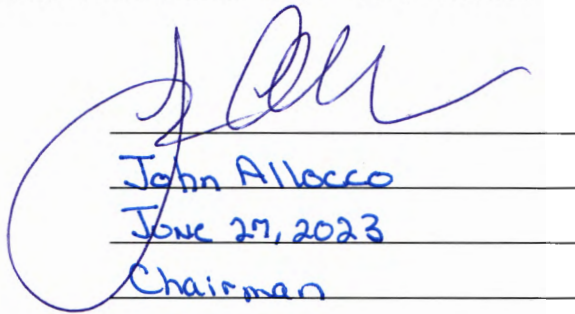 John Allocco
June 27, 2023
Chairman